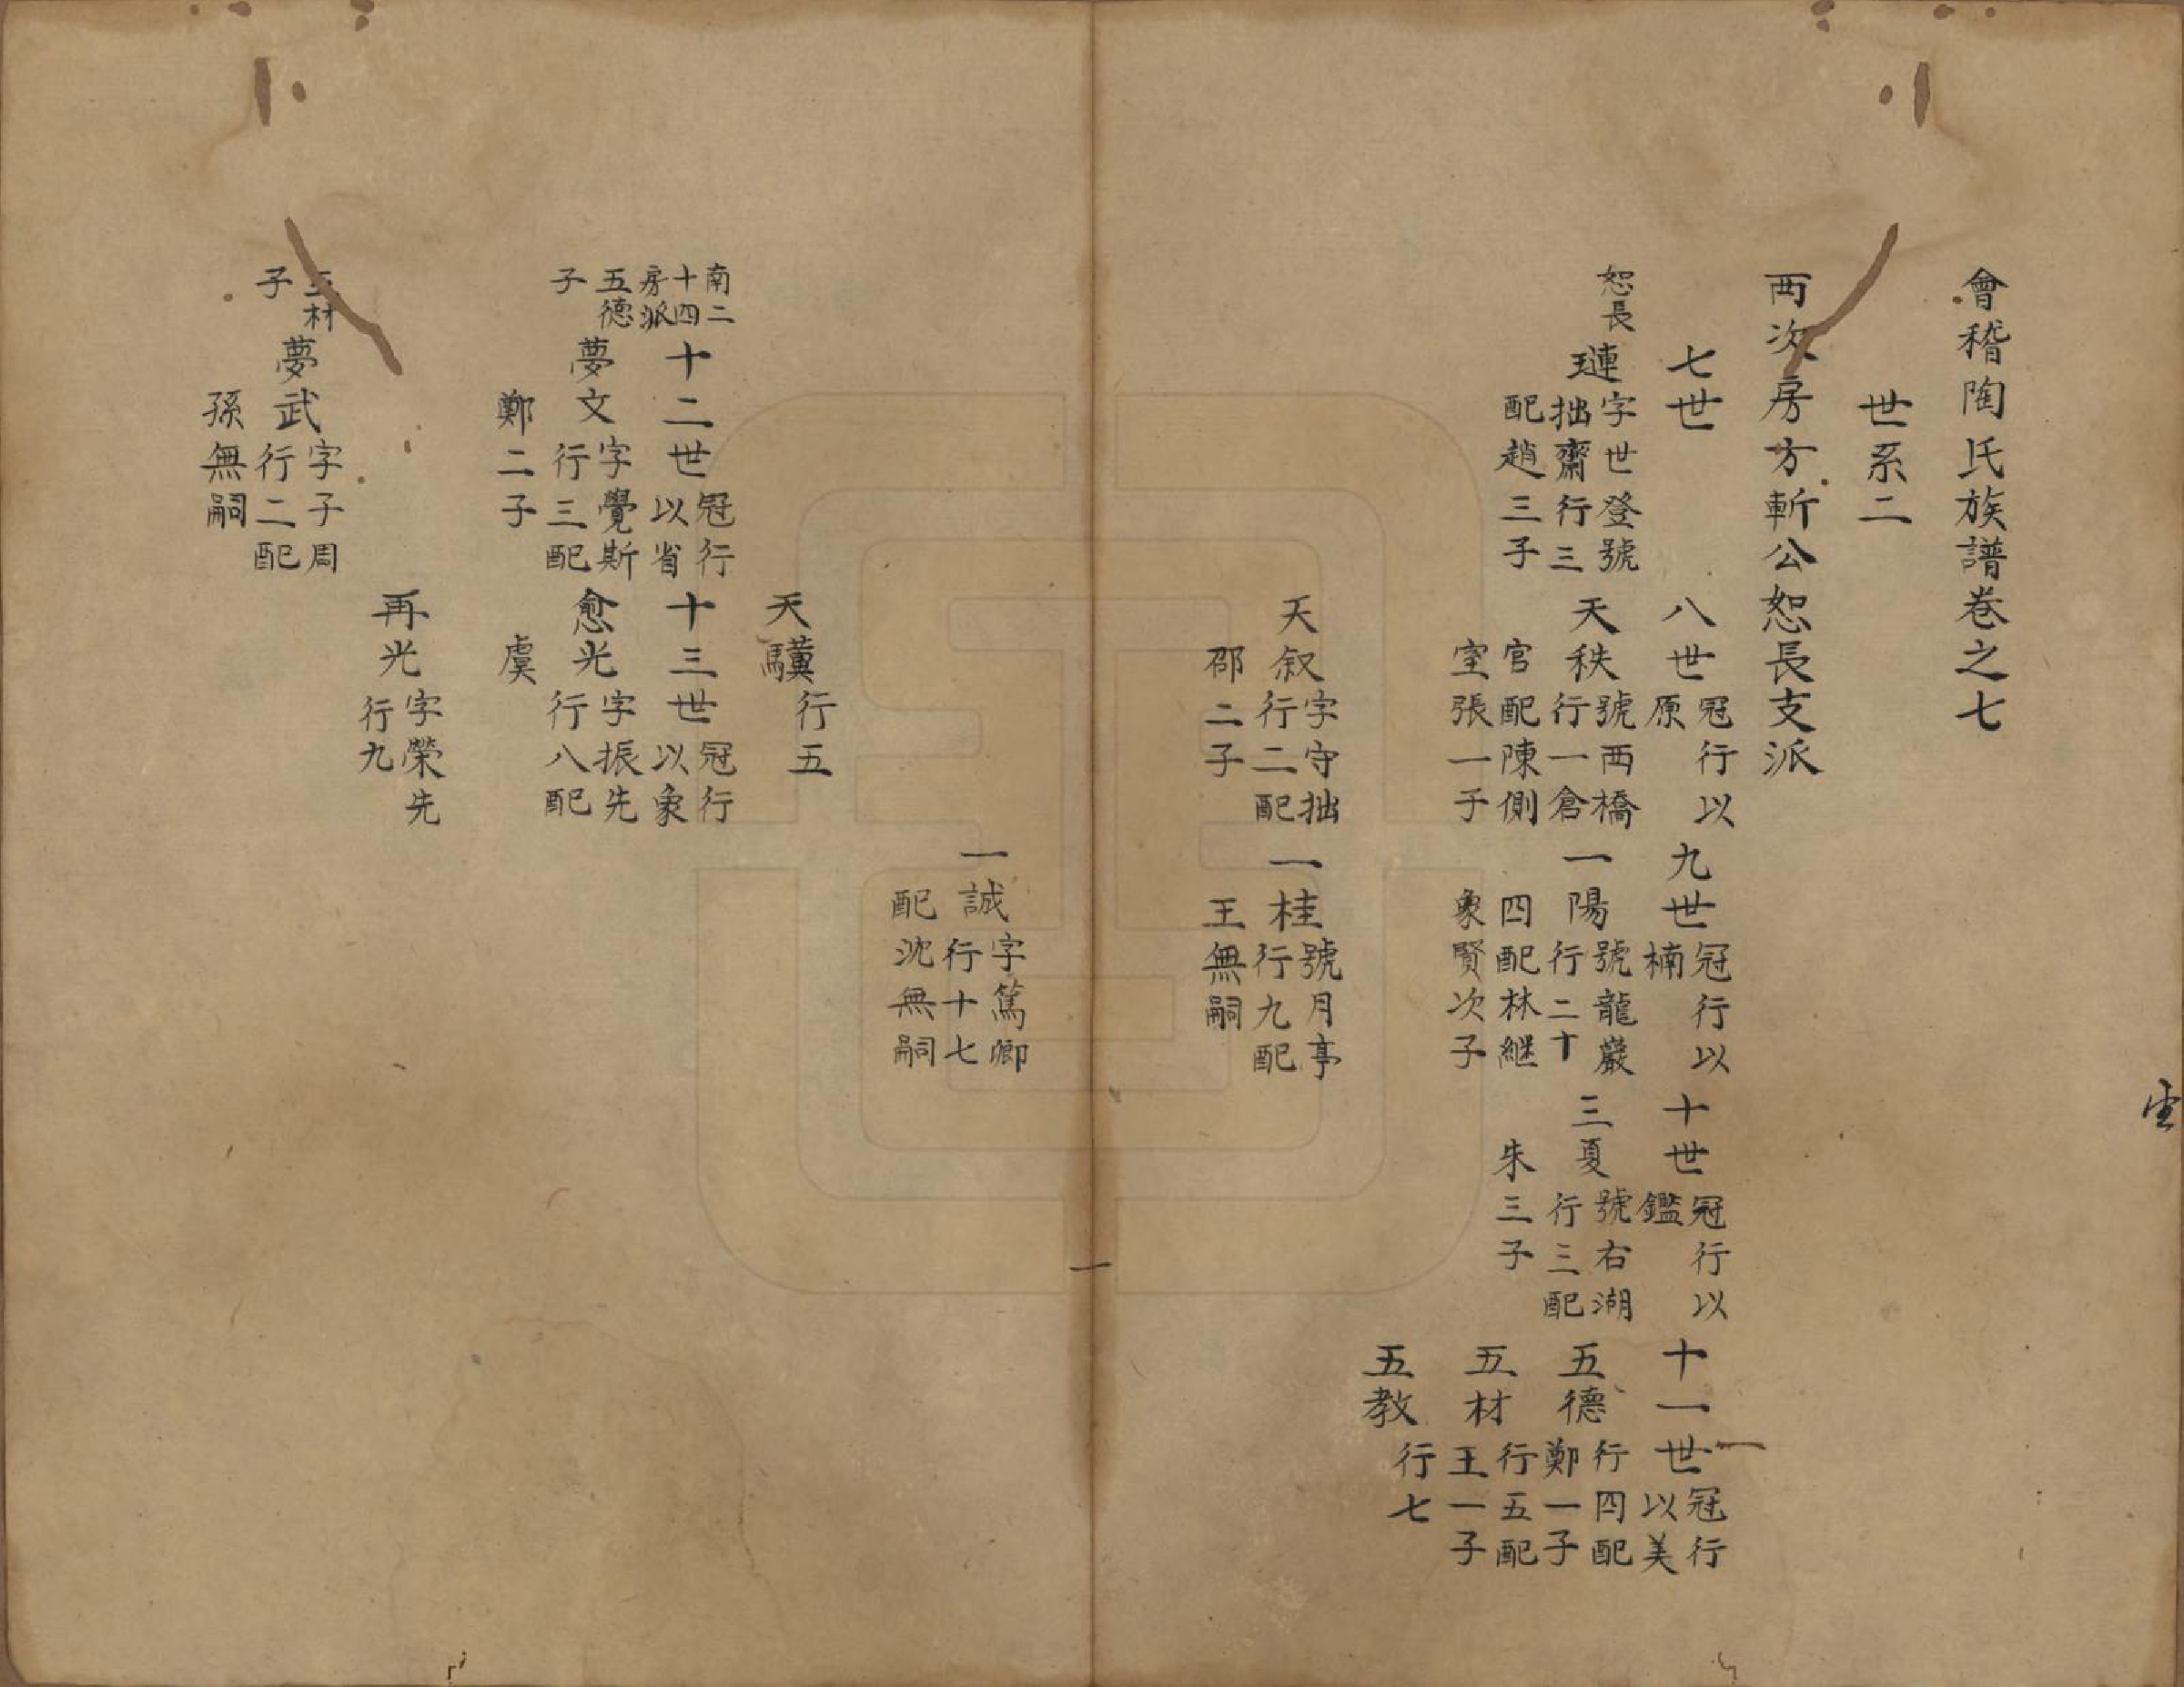 會稽陶氏族譜卷之七
世系二
西次房方斬公恕長支派
七世
八世 冠行以原
九世 冠行以楠
十世 冠行以鑑
十一世 冠行以美
恕長
璉 字世登號拙齋行三配趙三子
天秩 號西橋行一倉官配陳側室張一子
一陽 號龍巖行二十四配林継象賢次子
三夏 號右湖行三配朱三子
五德 行四配鄭一子
五材 行五配王一子
五教 行七
天叙 字守拙行二配邵二子
一桂 號月亭行九配王無嗣
一
一誠 字篤卿行十七配沈無嗣
天驥 行五
南二十四房派
十二世 冠行以省
十三世 冠行以象
五德子
夢文 字覺斯行三配鄭二子
愈光 字振先行八配虞
再光 字榮先行九
五材子
夢武 字子周行二配孫無嗣